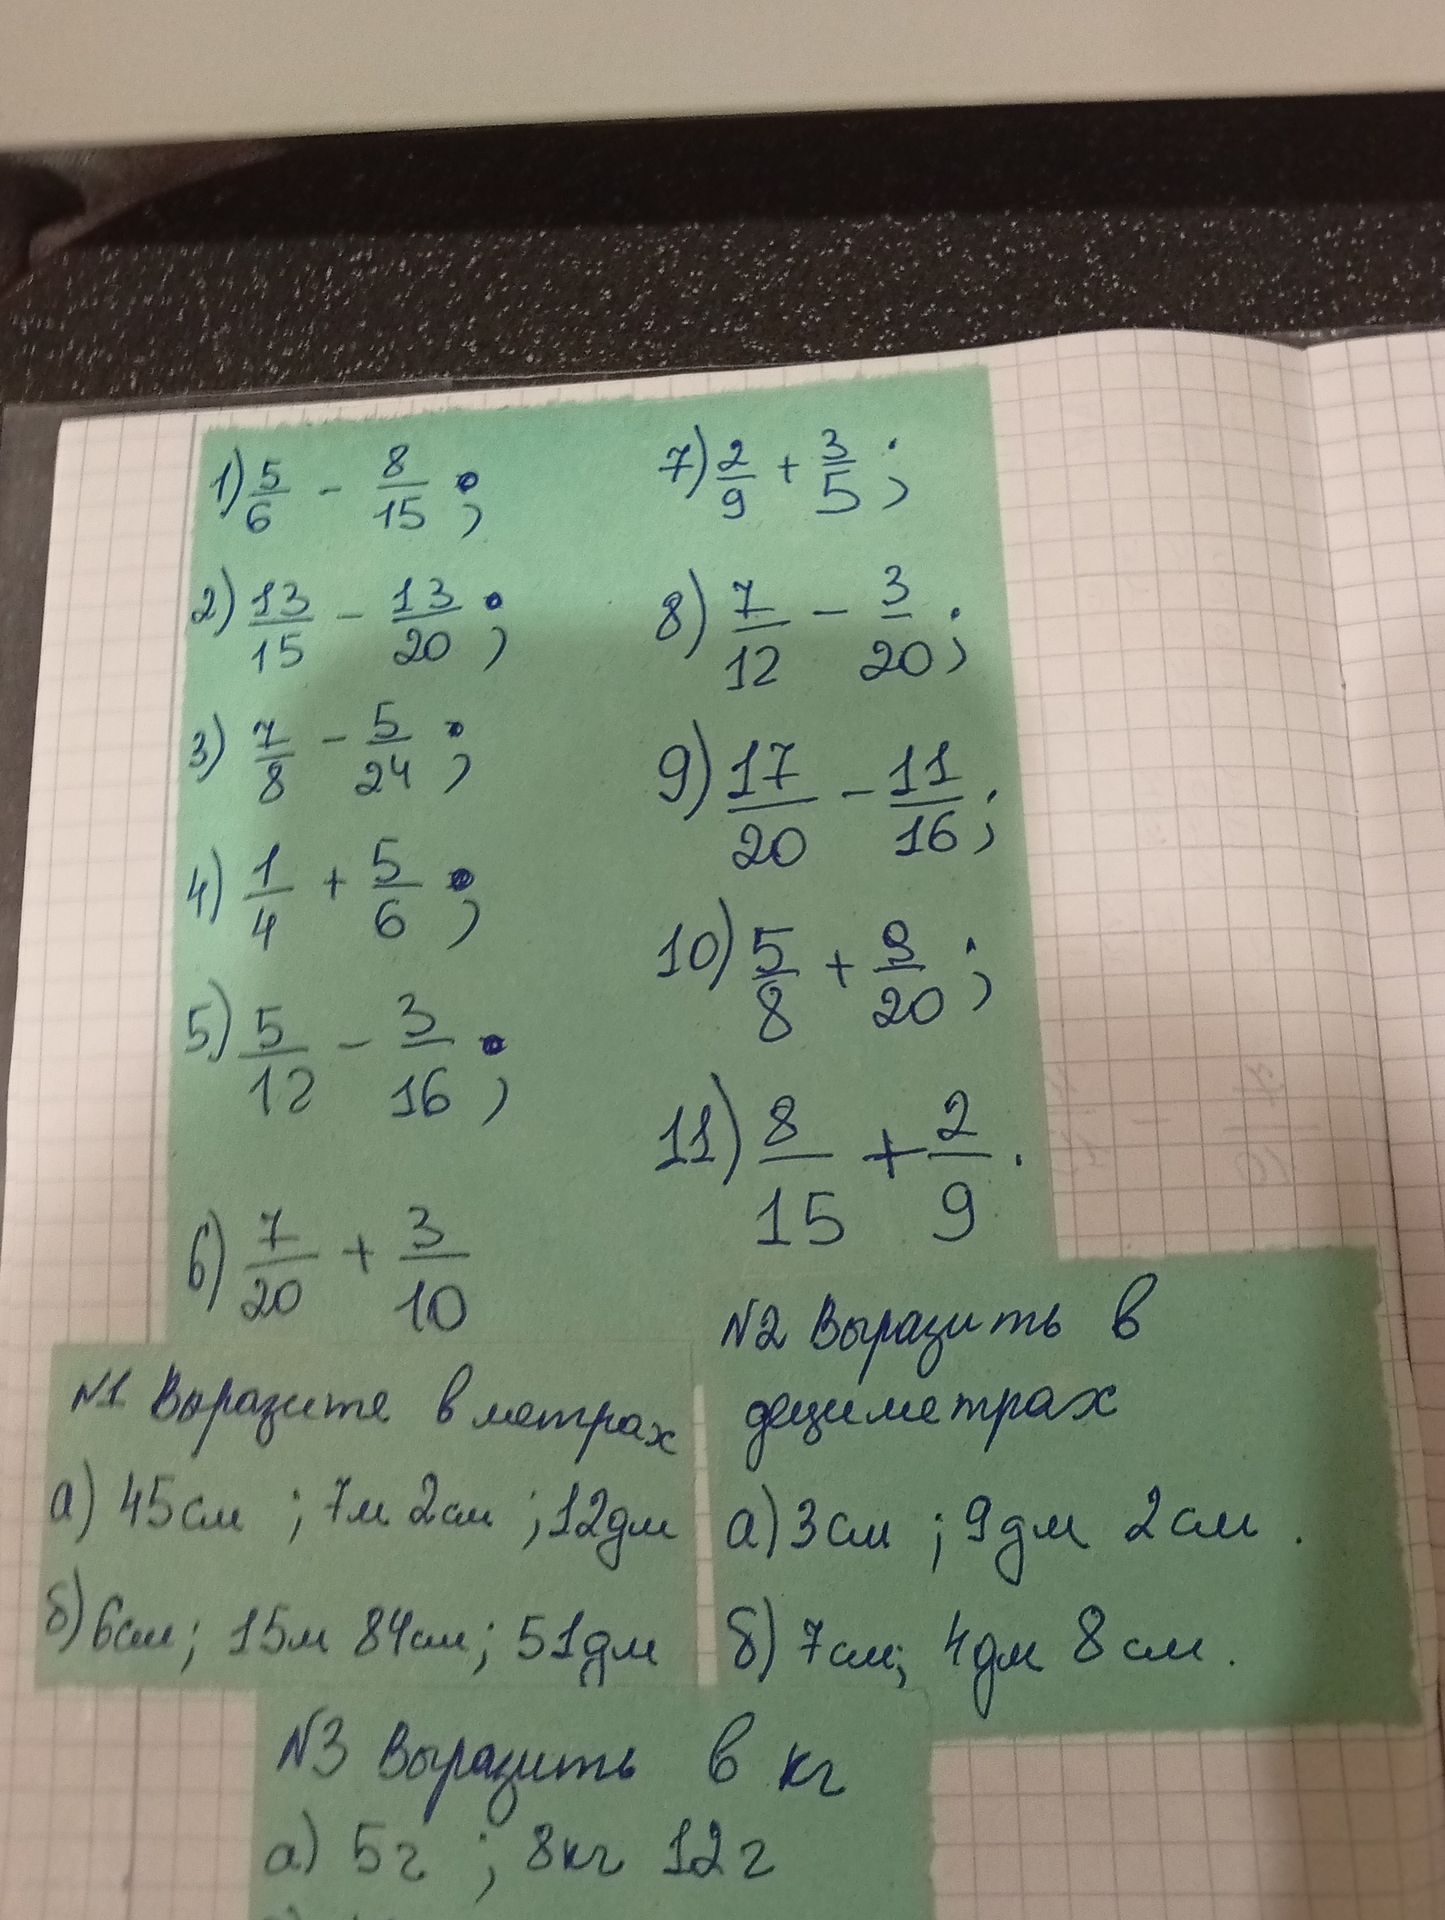 1) 5/6 - 8/15;
2) 13/15 - 13/20;
3) 7/8 - 5/24;
4) 1/4 + 5/6;
5) 5/12 - 3/16;
6) 7/20 + 3/10
7) 2/9 + 3/5;
8) 7/12 - 3/20;
9) 17/20 - 11/16;
10) 5/8 + 9/20;
11) 8/15 + 2/9.
№1 Выразите в метрах
а) 45см ; 7м 2см ; 12дм
б) 6см; 15м 84см; 51дм
№2 Выразить в
дециметрах
а) 3см ; 9дм 2см.
б) 7см; 4дм 8см.
№3 Выразить в кг
а) 5г ; 8кг 12г